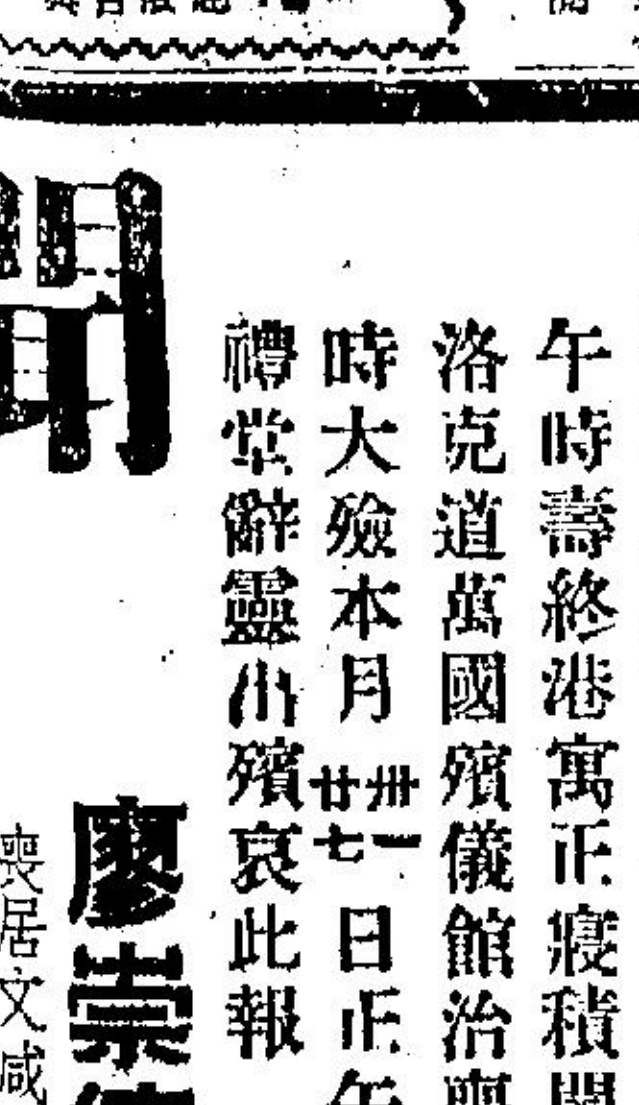 午時壽終港寓正寢積閏
洛克道萬國殯儀館治喪
時大殮本月卅一廿七日正午
禮堂辭靈出殯哀此報
聞
廖崇德
喪居文咸